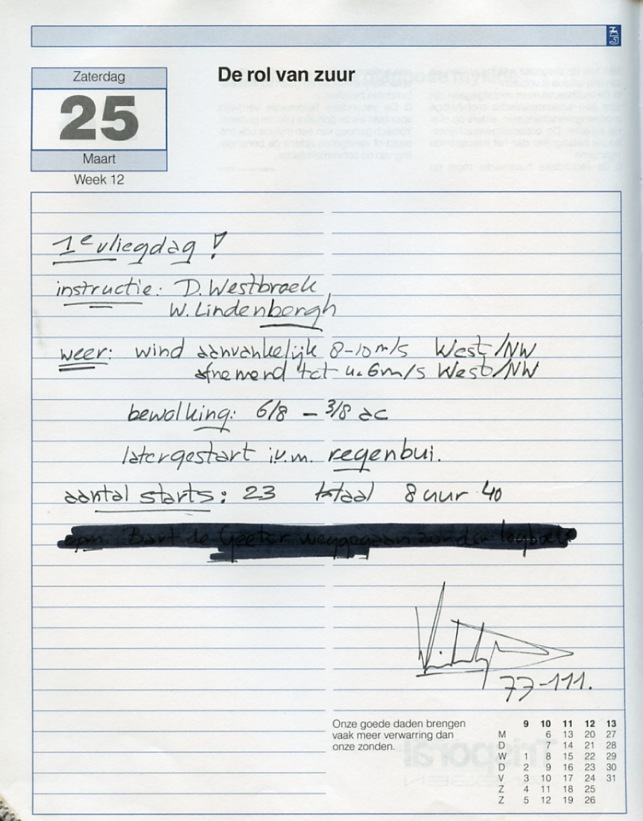 Zaterdag
25
Maart
Week 12
De rol van zuur
1e vliegdag !
instructie: D. Westbroek
W. Lindenbergh
weer: wind aanvankelijk 8-10 m/s West/NW
afnemend tot 4 à 6m/s West/NW
bewolking: 6/8 - 3/8 ac
later gestart i.v.m. regenbui.
aantal starts: 23 totaal 8 uur 40
77-111.
Onze goede daden brengen
vaak meer verwarring dan
onze zonden.
9 10 11 12 13
M 6 13 20 27
D 7 14 21 28
W 1 8 15 22 29
D 2 9 16 23 30
V 3 10 17 24 31
Z 4 11 18 25
Z 5 12 19 26